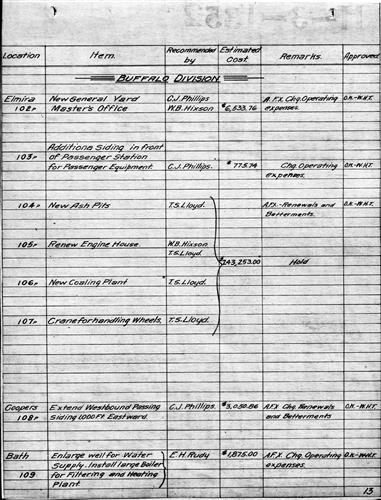 11-3-1352
Location Item. Recommended by Estimated Cost Remarks. Approved
BUFFALO DIVISION
Elmira New General Yard C.J. Phillips A.F.X. Chg. Operating O.K.-W.H.T.
102P Master's Office W.B. Hixson $6,533.76 expenses.
Additional Siding in front
103P of Passenger Station
for Passenger Equipment. C.J. Phillips. $775.74 Chg. Operating O.K.-W.H.T.
expenses.
104P New Ash Pits T.S. Lloyd. A.F.X.-Renewals and O.K.-W.H.T.
Betterments.
105P Renew Engine House. W.B. Hixson
T.S. Lloyd.
$243,253.00 Hold
106P New Coaling Plant T.S. Lloyd.
107P Crane for handling Wheels. T.S. Lloyd.
Coopers Extend Westbound Passing C.J. Phillips. $3,050.86 A.F.X. Chg. Renewals O.K.-W.H.T.
108P Siding 1,000 Ft. Eastward. and Betterments
Bath Enlarge well for Water E.H. Rudy $1,875.00 A.F.X. Chg. Operating O.K.-W.H.T.
Supply. Install large Boiler expenses.
109 for Filtering and Heating
Plant
13